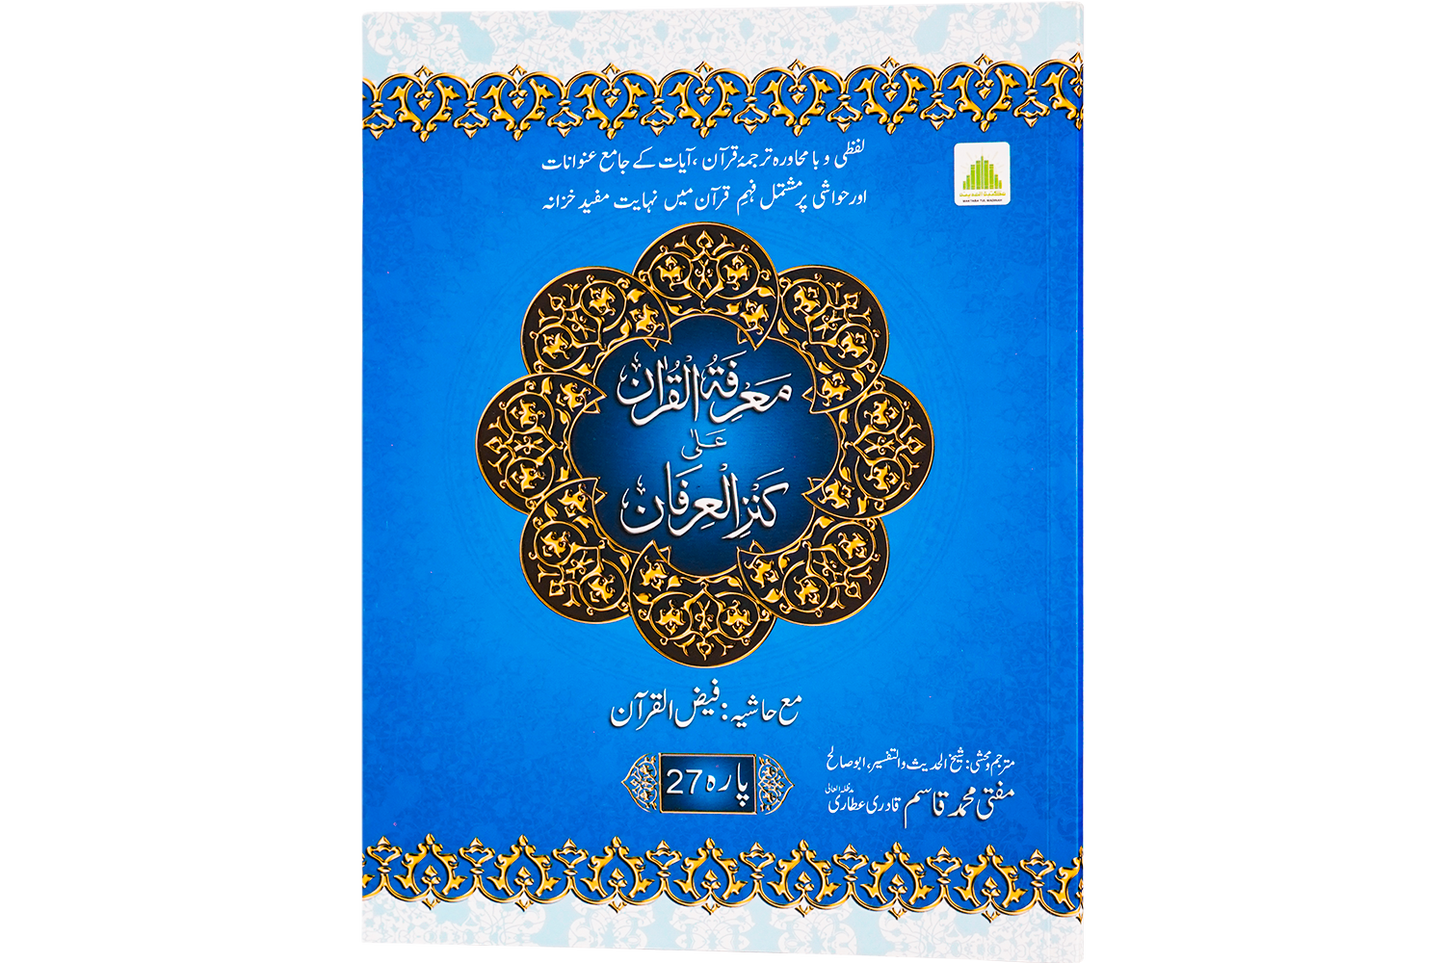 لفظی و بامحاورہ ترجمۂ قرآن، آیات کے جامع عنوانات
اور حواشی پر مشتمل فہمِ قرآن میں نہایت مفید خزانہ
مَعْرِفَۃُ الْقُرْاٰن
عَلٰی
کَنْزِ الْعِرْفَان
مع حاشیہ: فیض القرآن
پارہ 27
مترجم و محشی: شیخ الحدیث والتفسیر، ابو صالح
مفتی محمد قاسم قادری عطاری مدظلہ العالی
مكتبة المدينه
MAKTABA TUL MADINAH